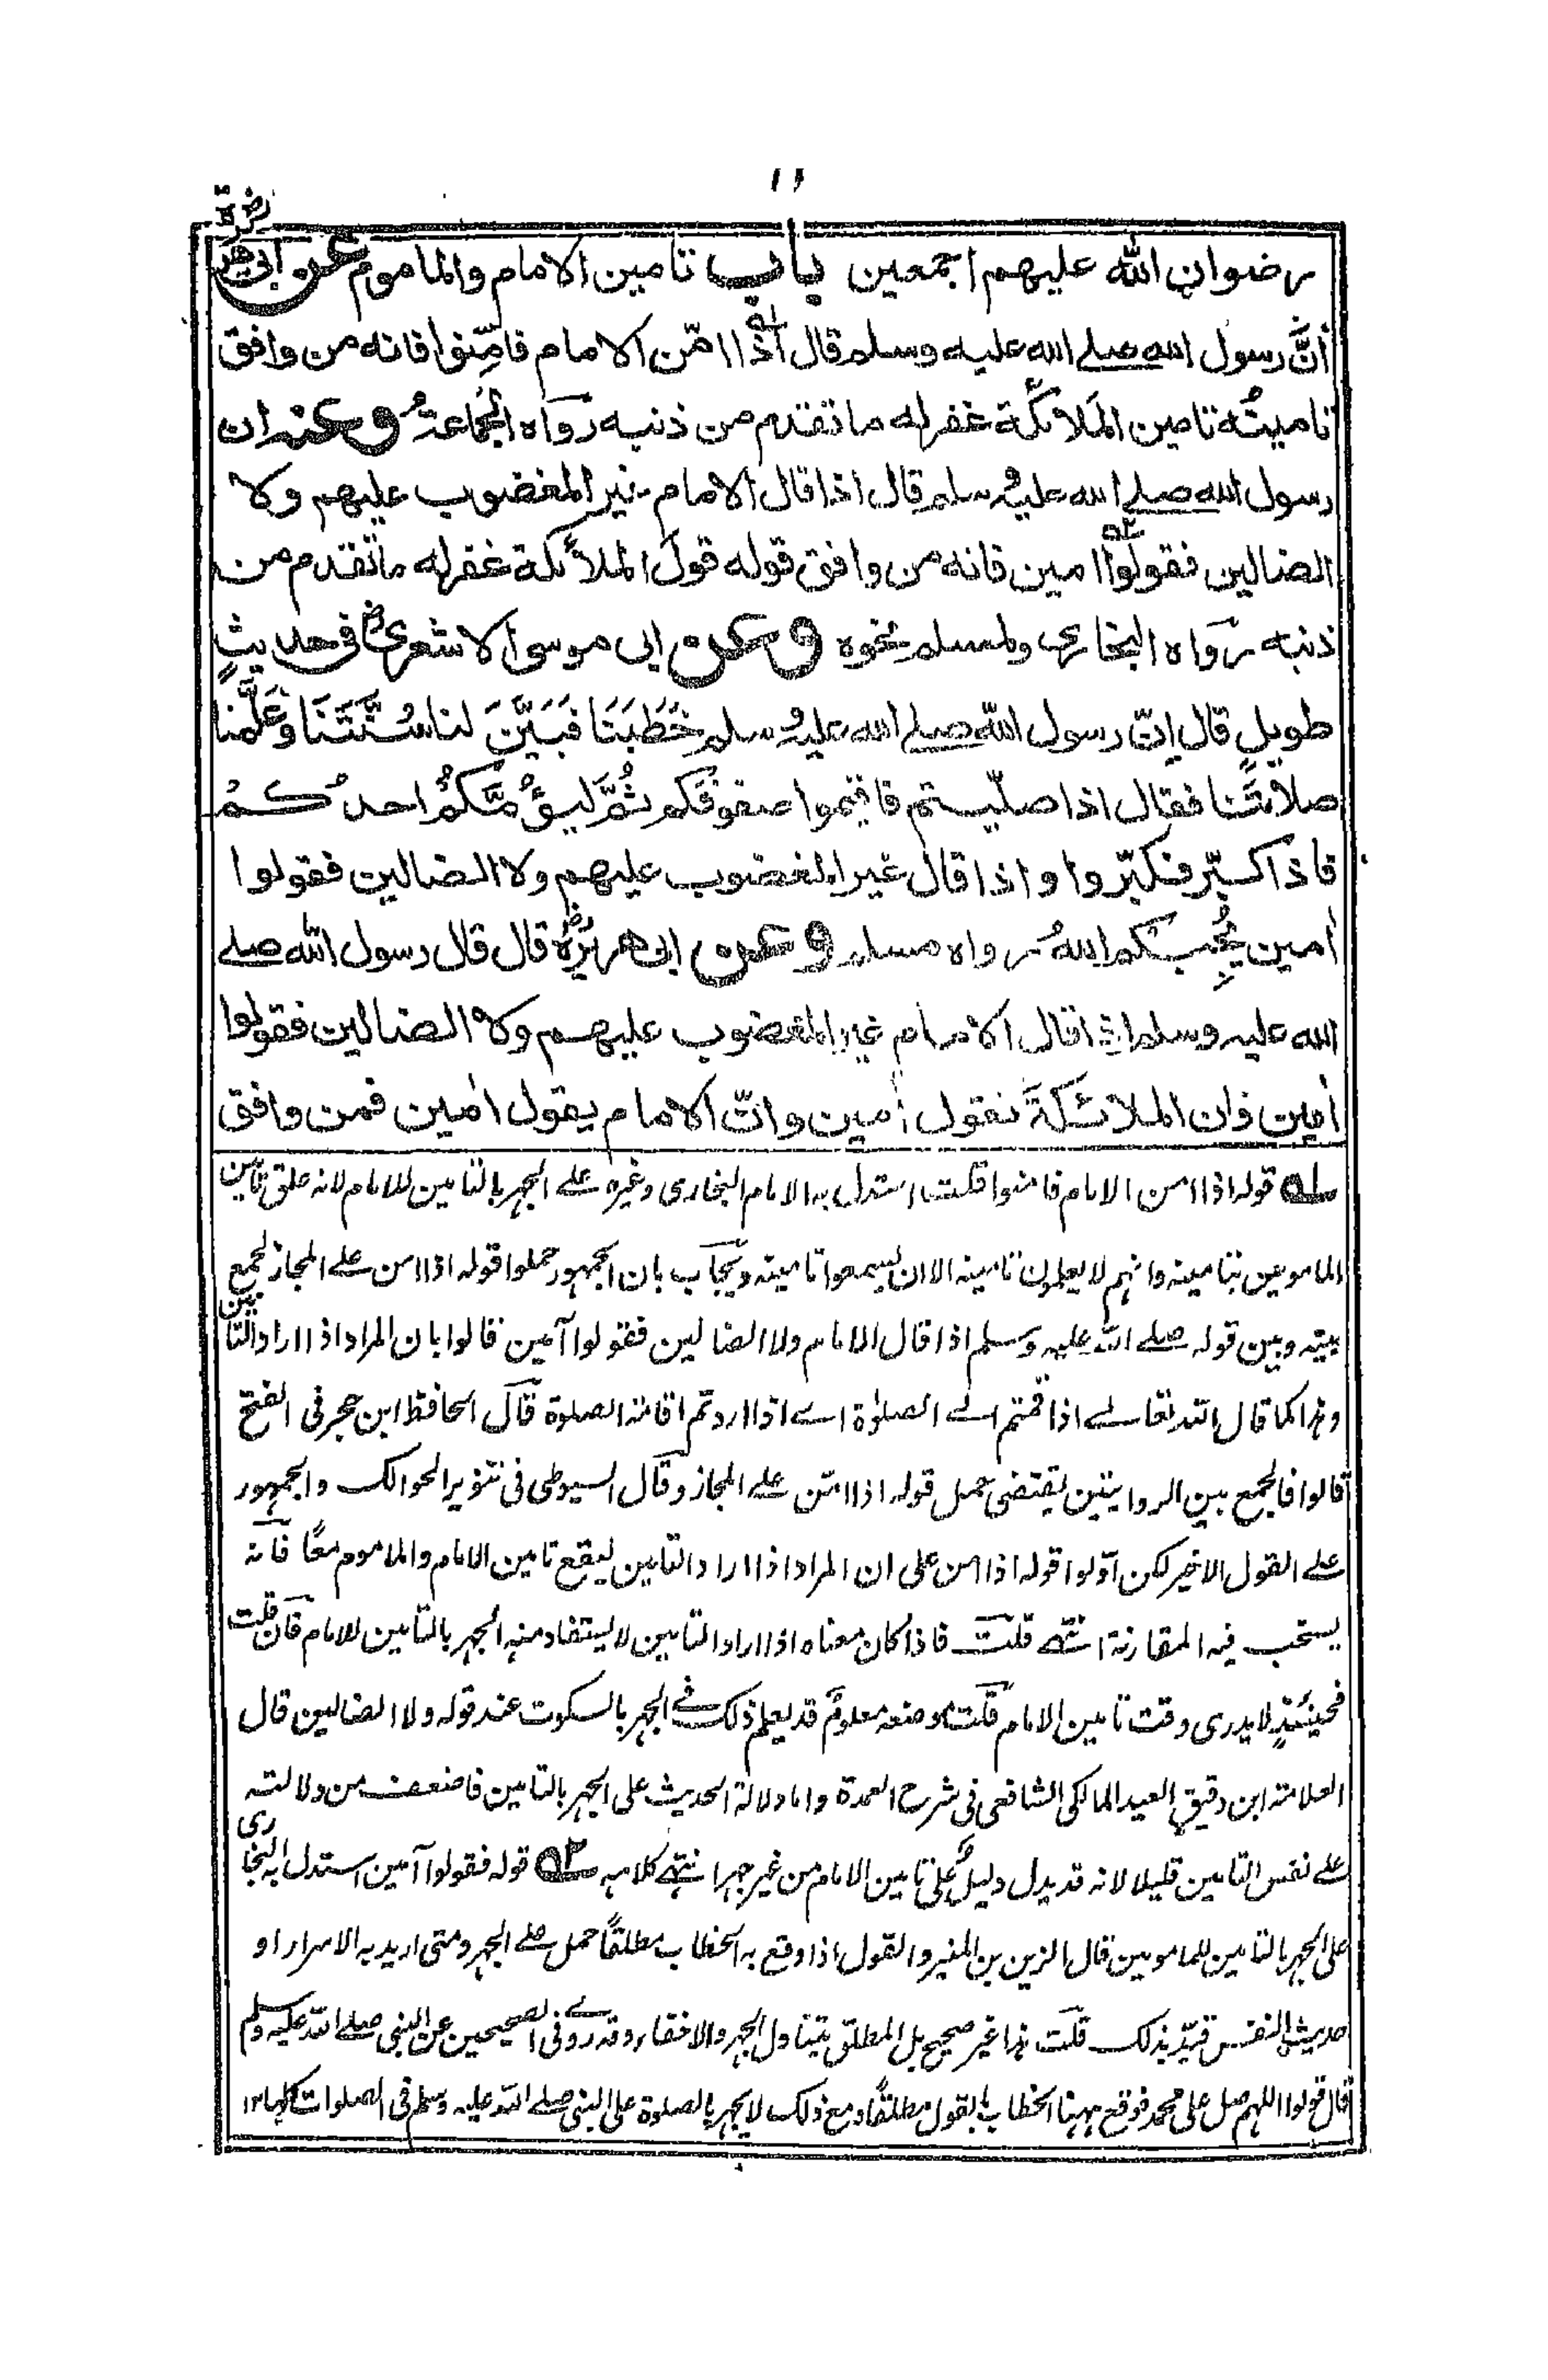 رضوان الله عليهم اجمعين باب تامين الامام والماموم عن ابى هريرة رض
أنَّ رسول الله صلى الله عليه وسلم قال اذا امّن الامام فامِّنوا فانه من وافق
تامينُه تامين الملائكة غفر له ما تقدم من ذنبه رواه الجماعةُ وعنه ان
رسول الله صلى الله عليه وسلم قال اذا قال الامام غير المغضوب عليهم ولا
الضالين فقولوا امين فانه من وافق قوله قول الملائكة غفر له ما تقدم من
ذنبه رواه البخارى ولمسلم نحوه وعن ابى موسى الاشعرى رض فى حديثٍ
طويلٍ قال انّ رسول الله صلى الله عليه وسلم خَطَبَنَا فَبَيَّنَ لنا سُنَّتَنَا وعَلَّمنا
صلاتَنا فقال اذا صلّيتم فاقيموا صفوفكم ثُمَّ ليؤُمَّكُمْ احدُكمْ
فاذا كبّر فكبّروا واذا قال غير المغضوب عليهم ولا الضالين فقولوا
اٰمين يُجِبْكم اللهُ رواه مسلم وعن ابى هريرة رض قال قال رسول الله صلى
الله عليه وسلم اذا قال الامام غير المغضوب عليهم ولا الضالين فقولوا
اٰمين فان الملائكةَ تقول اٰمين وانّ الامام يقول اٰمين فمن وافق
ـ١ قوله اذا امن الامام فامنوا قلت استدل به الامام البخارى وغيره على الجهر بالتامين للامام لانه علق تامين
المامومين بتامينه وانهم لا يعلمون تامينه الا ان يسمعوا تامينه ويجاب بان الجمهور حملوا قوله اذا امن على المجاز لجمع
بينه وبين قوله صلى الله عليه وسلم اذا قال الامام ولا الضالين فقولوا آمين قالوا بان المراد اذا اراد التامين
وهذا كما قال الله تعالى اذا قمتم الى الصلوٰة اى اذا اردتم اقامة الصلوة قال الحافظ ابن حجر فى الفتح
قالوا فالجمع بين الروايتين يقتضى حمل قوله اذا امّن على المجاز وقال السيوطى فى تنوير الحوالك والجمهور
على القول الاخير لكن اوّلوا قوله اذا امن على ان المراد اذا اراد التامين ليقع تامين الامام والماموم معًا فانه
يستحب فيه المقارنة انتهى قلت فاذا كان معناه اذا اراد التامين لا يستفاد منه الجهر بالتامين للامام فان قلت
فحينئذٍ لا يدرى وقت تامين الامام قلت موضعه معلومٌ قد يعلم ذلك فى الجهر بالسكوت عند قوله ولا الضالين قال
العلامة ابن دقيق العيد المالكى الشافعى فى شرح العمدة واما دلالة الحديث على الجهر بالتامين فاضعف من دلالته
على نفس التامين قليلا لانه قد يدل دليلٌ على تامين الامام من غير جهر انتهى كلامه ـ٢ قوله فقولوا آمين استدل به البخارى
على الجهر بالتامين للمامومين قال الزين بن المنير والقول اذا وقع به الخطاب مطلقًا حمل على الجهر ومتى اريد به الاسرار او
حديث النفس قيّد بذلك قلت هذا غير صحيح بل المطلق يتناول الجهر والاخفاء وقد روى فى الصحيحين عن النبى صلى الله عليه وسلم
قال قولوا اللهم صل على محمد فوقع ههنا الخطاب بالقول مطلقًا ومع ذلك لا يجهر بالصلوة على النبى صلى الله عليه وسلم فى الصلوات كلها ١٢